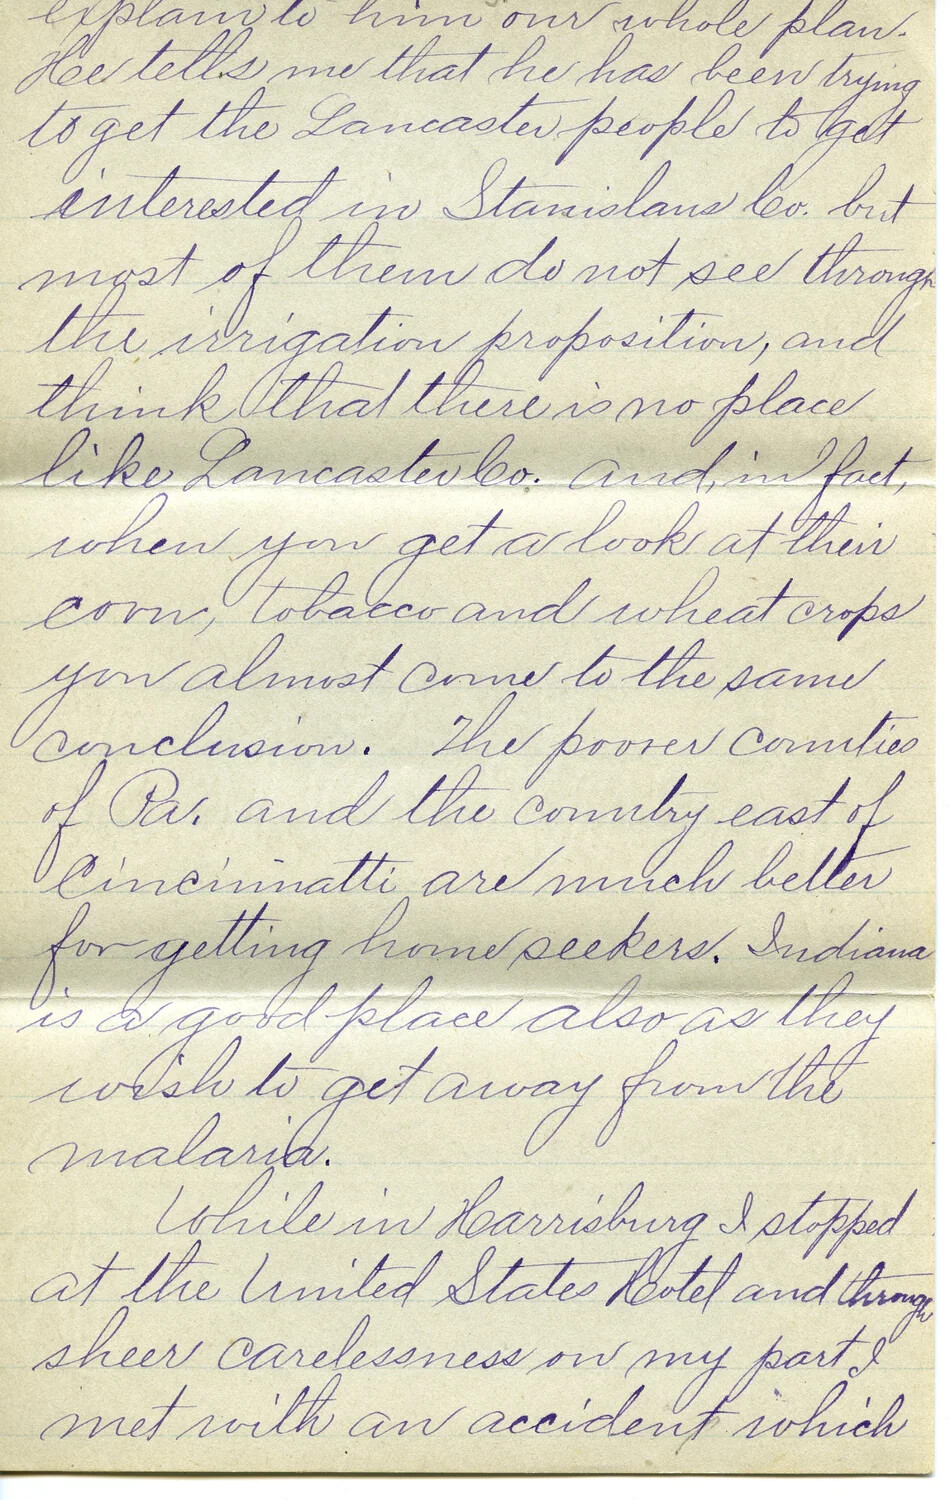 explain to him our whole plan.
He tells me that he has been trying
to get the Lancaster people to get
interested in Stanislaus Co. but
most of them do not see through
the irrigation proposition, and
think that there is no place
like Lancaster Co. and, in fact,
when you get a look at their
corn, tobacco and wheat crops
you almost come to the same
conclusion. The poorer counties
of Pa. and the country east of
Cincinnatti are much better
for getting home seekers. Indiana
is a good place also as they
wish to get away from the
malaria.
While in Harrisburg I stopped
at the United States Hotel and through
sheer carelessness on my part I
met with an accident which